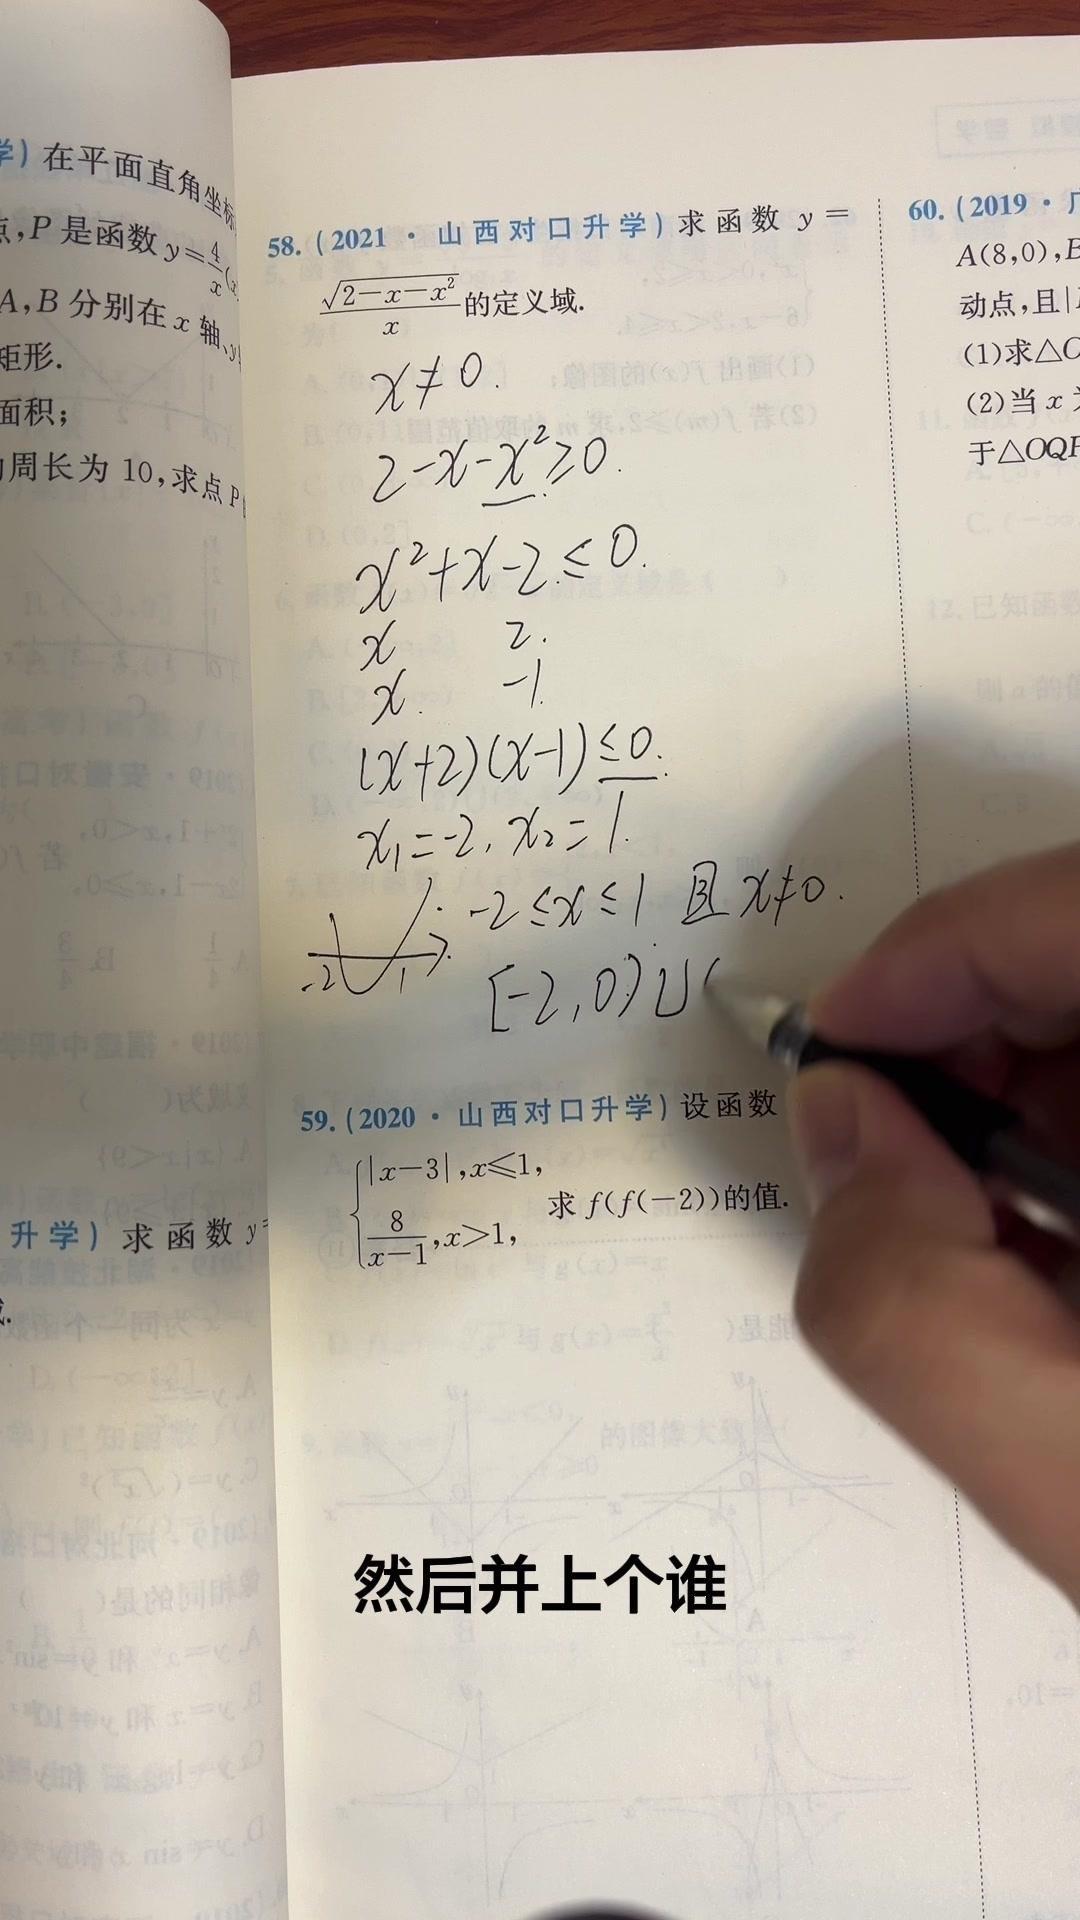 学)在平面直角坐标
点,P 是函数 y=4/x(
A,B 分别在 x 轴、y
矩形.
面积;
周长为 10,求点 P
升学) 求函数 y=
58. (2021·山西对口升学) 求函数 y=
√(2-x-x²)/x 的定义域.
x≠0.
2-x-x²≥0.
x²+x-2≤0.
x 2.
x. -1
(x+2)(x-1)≤0.
x₁=-2, x₂=1.
-2≤x≤1 且 x≠0.
-2 1
[-2,0)∪(
59. (2020·山西对口升学) 设函数
{|x-3|,x≤1,
8/(x-1),x>1,
求 f(f(-2))的值.
60. (2019·广
A(8,0),B
动点,且|
(1)求△O
(2)当 x
于△OQP
然后并上个谁